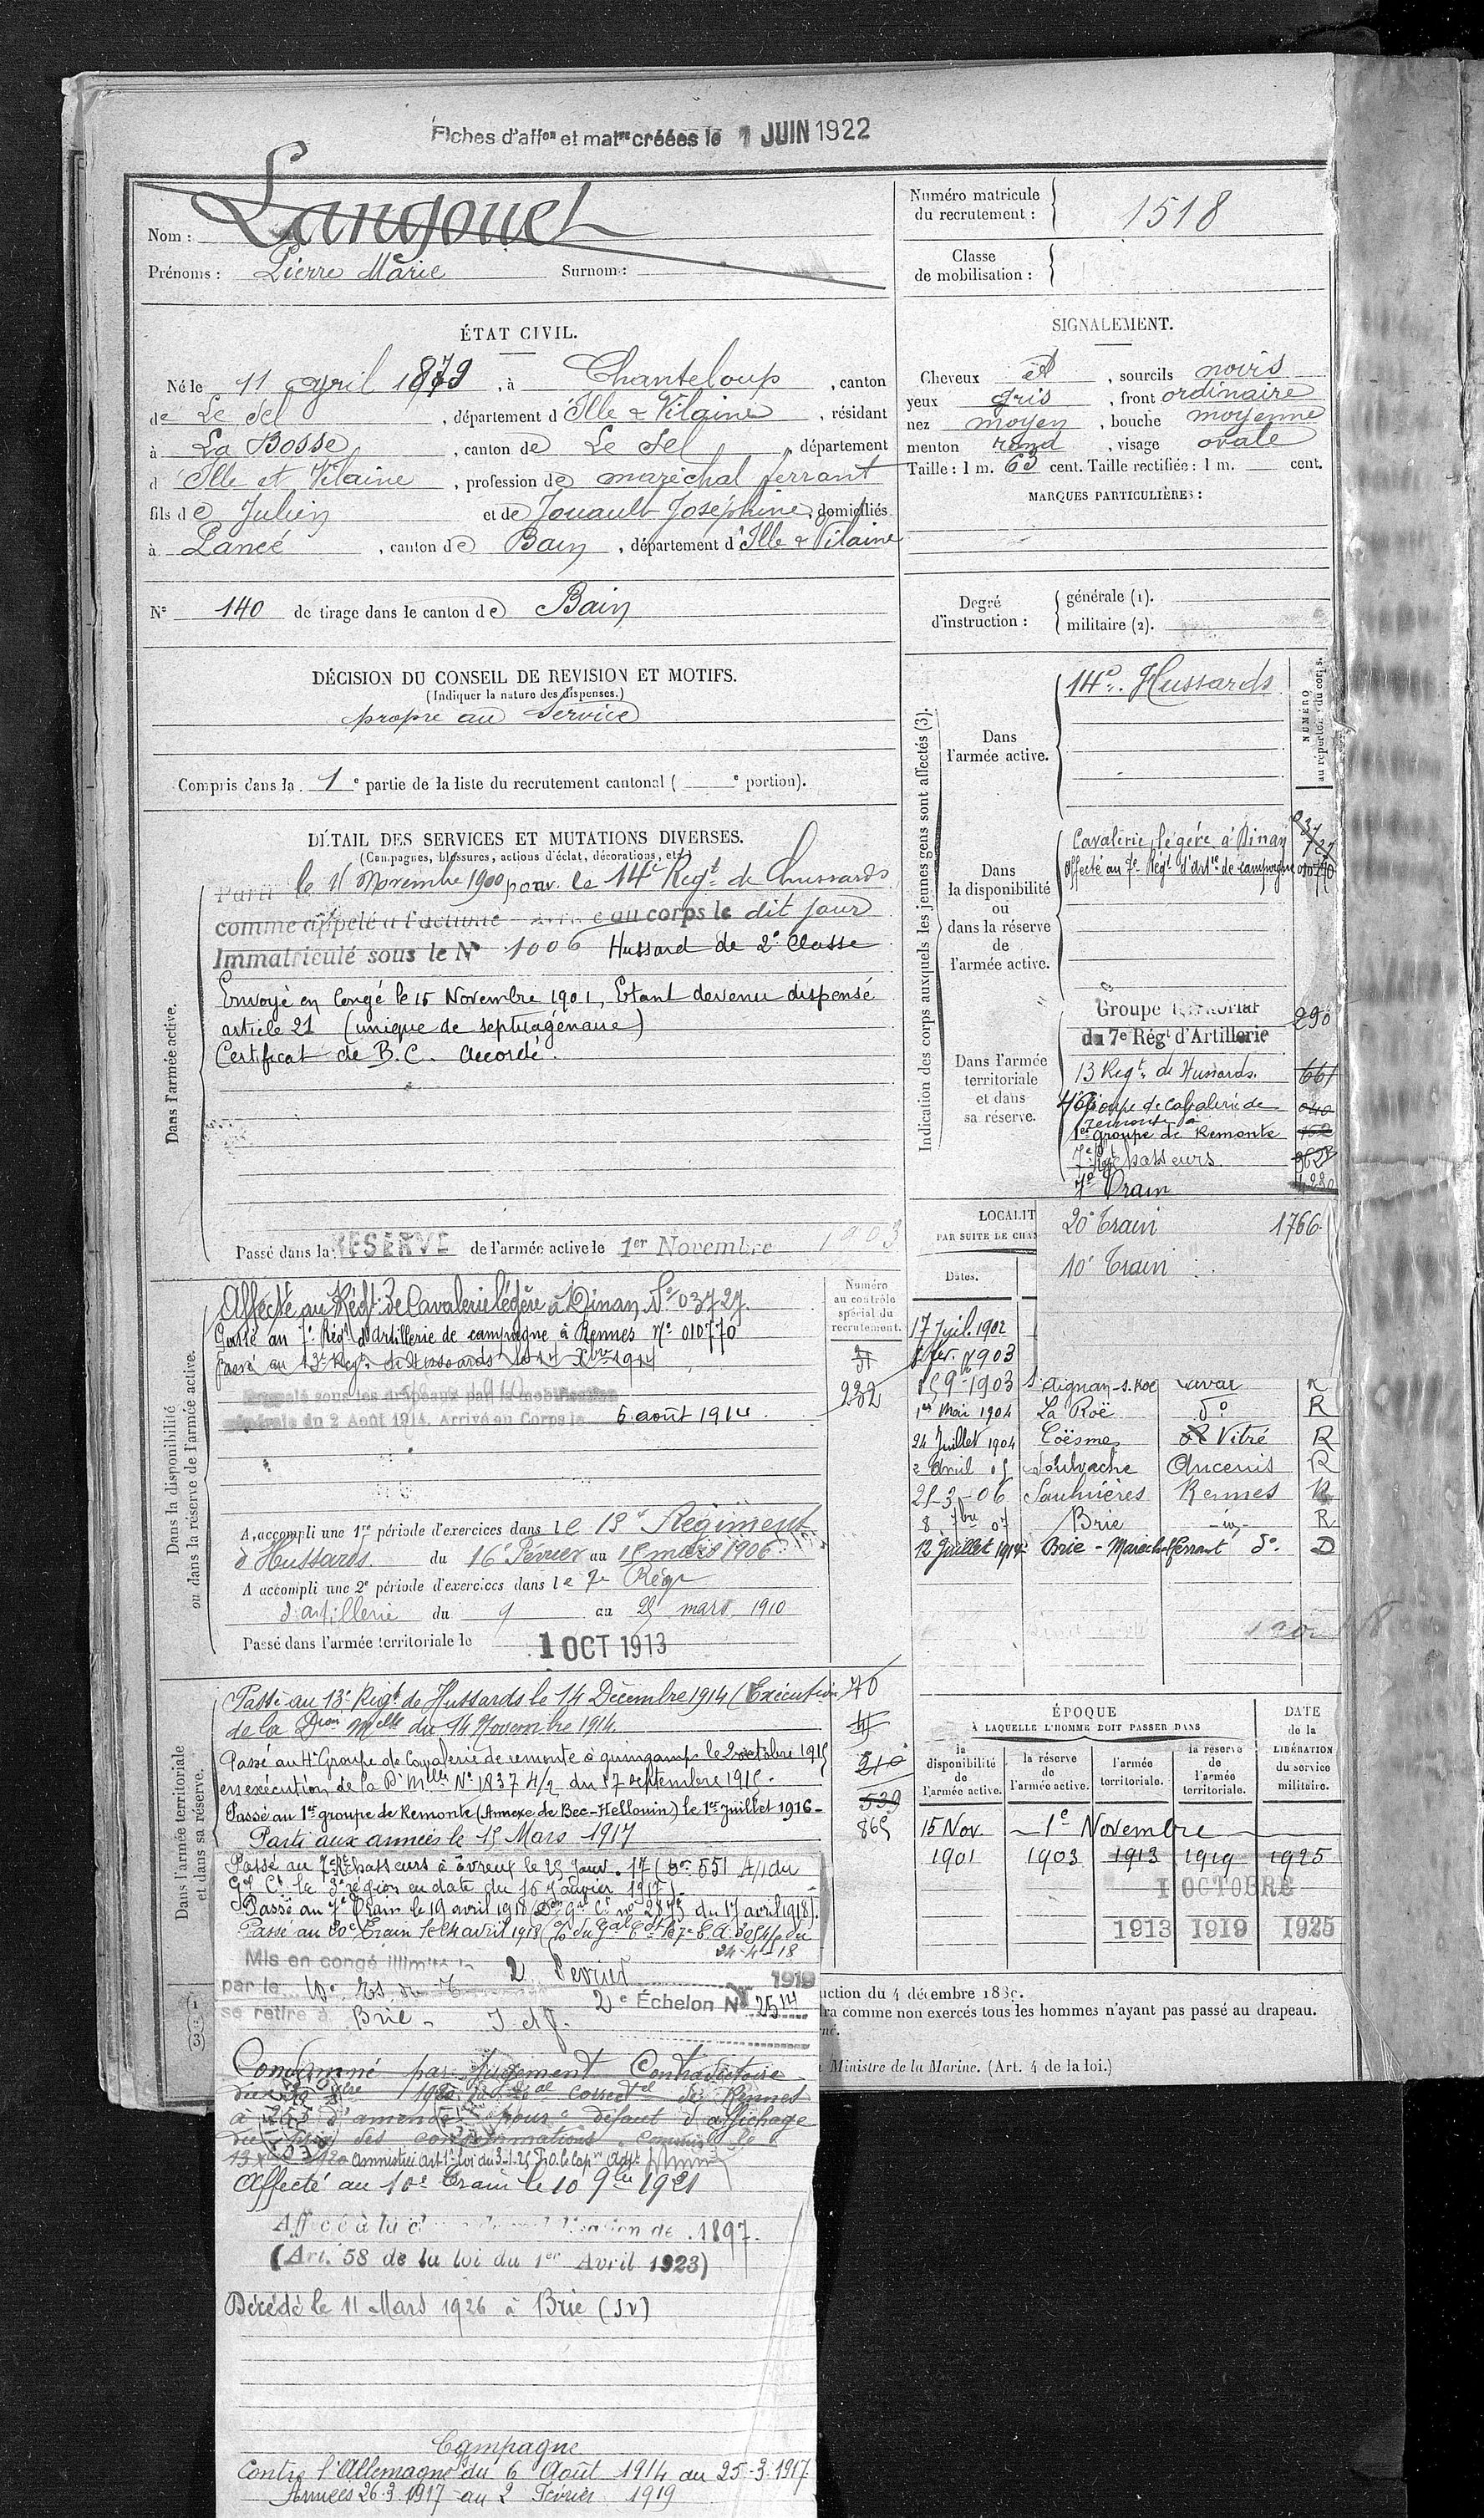 Fiches d'affon et matre créées le 1 JUIN 1922
Nom : Langouet
Prénoms : Pierre Marie Surnom :
Numéro matricule du recrutement : 1518
Classe de mobilisation :
ÉTAT CIVIL.
Né le 11 avril 1879, à Chanteloup, canton
de Le Sel, département d'Ille & Vilaine, résidant
à La Bosse, canton de Le Sel, département
d Ille et Vilaine, profession de maréchal ferrant
fils de Julien et de Jouault Joséphine, domiciliés
à Lancé, canton de Bain, département d'Ille & Vilaine
N° 140 de tirage dans le canton de Bain
SIGNALEMENT.
Cheveux et, sourcils noirs
yeux gris, front ordinaire
nez moyen, bouche moyenne
menton rond, visage ovale
Taille : 1 m. 63 cent. Taille rectifiée : 1 m. cent.
MARQUES PARTICULIÈRES :
Degré d'instruction :
générale (1).
militaire (2).
DÉCISION DU CONSEIL DE REVISION ET MOTIFS.
(Indiquer la nature des dispenses.)
propre au Service
Compris dans la 1e partie de la liste du recrutement cantonal ( e portion).
DÉTAIL DES SERVICES ET MUTATIONS DIVERSES.
(Campagnes, blessures, actions d'éclat, décorations, etc.)
Dans l'armée active.
Parti le 11 Novembre 1900 pour le 14e Regt de hussards
comme appelé à l'activité au corps le dit jour
Immatriculé sous le N° 1006 Hussard de 2e Classe
Envoyé en Congé le 15 Novembre 1901, Etant devenu dispensé
article 21 (unique de septuagénaire)
Certificat de B.C. accordé.
Passé dans la RÉSERVE de l'armée active le 1er Novembre 1903
Dans la disponibilité ou dans la réserve de l'armée active.
Numéro au contrôle spécial du recrutement.
Affecté au Régt de Cavalerie légère à Dinan, N° 03727
Passé au 7e Régt d'Artillerie de campagne à Rennes N° 010770
Passé au 13e Regt de Hussards le 14 Xbre 1914
232
Rappelé sous les drapeaux par la mobilisation
générale du 2 Août 1914. Arrivé au Corps le 6 août 1914.
A accompli une 1re période d'exercices dans le 13e Régiment
d'Hussards du 16 Février au 15 mars 1906
A accompli une 2e période d'exercices dans le 7e Régt
d'artillerie du 9 au 25 mars 1910
Passé dans l'armée territoriale le 1 OCT 1913
Dans l'armée territoriale et dans sa réserve.
Passé au 13e Regt de Hussards le 14 Décembre 1914 (Exécution
de la Dion Melle du 14 Novembre 1914.
Passé au 4e Groupe de Cavalerie de remonte à guingamp le 2 octobre 1915
en exécution de la D. Mlle N° 1837 4/2 du 17 septembre 1915.
Passé au 1er groupe de Remonte (Annexe de Bec-Hellouin) le 1er Juillet 1916-
Parti aux armées le 15 Mars 1917
70
210
539
865
Passé au 7e Rt Chasseurs à Evreux le 25 Janv. 17 (On 551 4/1 du
Gal Ct la 3e région en date du 16 Janvier 1917).
Passé au 7e Train le 19 avril 1918 (Don Gal Ct n° 2873 du 17 avril 1918).
Passé au 20e Train le 24 avril 1918
24-4-18
Mis en congé illimité le 2 Fevrier 1919
par le 10e Es. du T. 2e Échelon N° 2514
se retire à Brie - I et V.
Condamné par Jugement Contradictoire
du Xbre 1920 du Tal Correctel de Rennes
à d'amende pour défaut d'affichage
du prix des consommations commis le
amnistié art 1er loi du 3-1-25 P.O. le Capne Adjt
Affecté au 10e Train le 10 9bre 1921
Affecté à la classe de mobilisation de 1897.
(Art. 58 de la loi du 1er Avril 1923)
Décédé le 11 Mars 1926 à Brie (IV)
Campagne
Contre l'Allemagne du 6 Août 1914 au 25-3-1917
Armées 26-3-1917 au 2 Février 1919
Indication des corps auxquels les jeunes gens sont affectés (3).
NUMÉRO au répertoire du corps.
Dans l'armée active.
14e Hussards
Dans la disponibilité ou dans la réserve de l'armée active.
Cavalerie légère à Dinan 03727
Affecté au 7e Régt d'Artie de campagne 010770
Dans l'armée territoriale et dans sa réserve.
Groupe territorial
du 7e Régt d'Artillerie 290
13 Regt de Hussards. 661
4e Groupe de Cavalerie de remonte 040
1er Groupe de Remonte 152
7e Regt Chasseurs
7e Train
20e Train 1766
10e Train
LOCALIT
PAR SUITE LE CHA
Dates.
17 Juil. 1902
fer. 1903
15 9bre 1903 St Aignan-s.Roë Laval R
1er Mai 1904 La Roë do R
24 Juillet 1904 Coësmes Vitré R
2 Avril 05 Soulvache Ancenis R
25-3-06 Saulnières Rennes R
8 7bre 07 Brie -id- R
12 Juillet 1914 Brie - Marechal ferrant do D
ÉPOQUE
À LAQUELLE L'HOMME DOIT PASSER DANS
la disponibilité de l'armée active.
la réserve de l'armée active.
l'armée territoriale.
la réserve de l'armée territoriale.
DATE de la LIBÉRATION du service militaire.
15 Nov. 1e Novembre
1901 1903 1913 1919 1925
1 OCTOBRE
1913 1919 1925
uction du 4 décembre 1889.
dra comme non exercés tous les hommes n'ayant pas passé au drapeau.
Ministre de la Marine. (Art. 4 de la loi.)